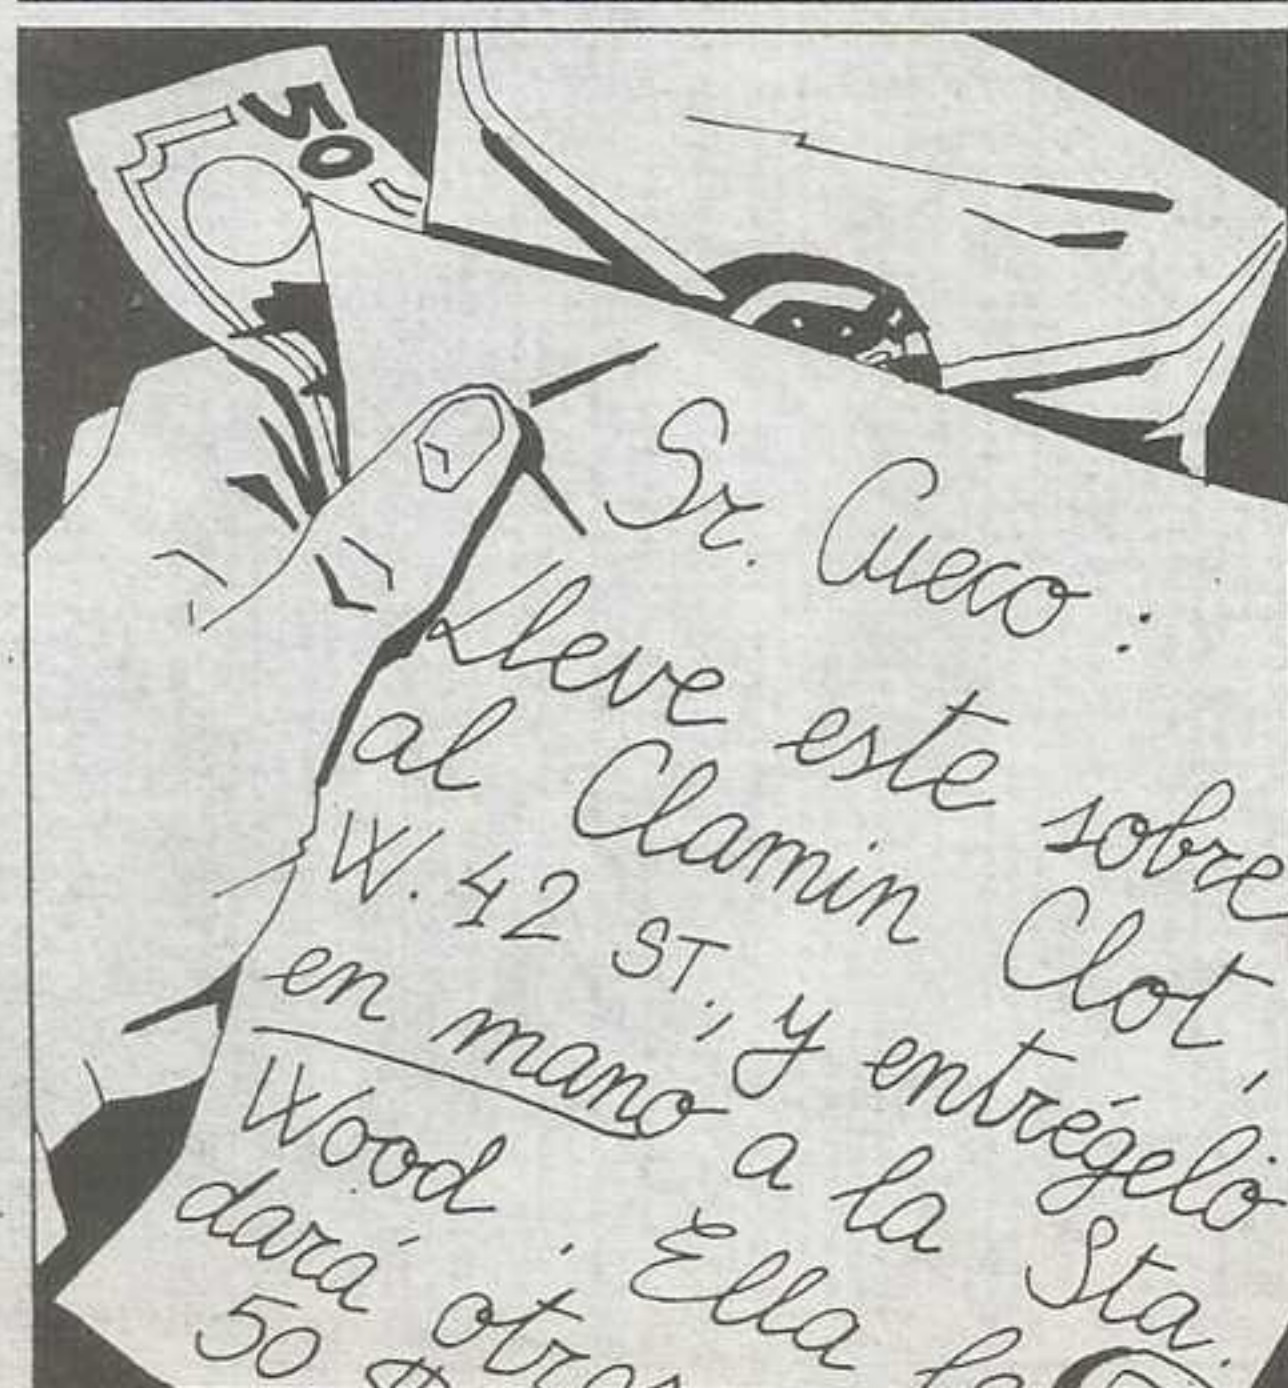 50
Sr. Cueco :
Lleve este sobre
al Clamin Clot,
W. 42 ST., y entrégelo
en mano a la Sta.
Wood. Ella
dará otros
50 $